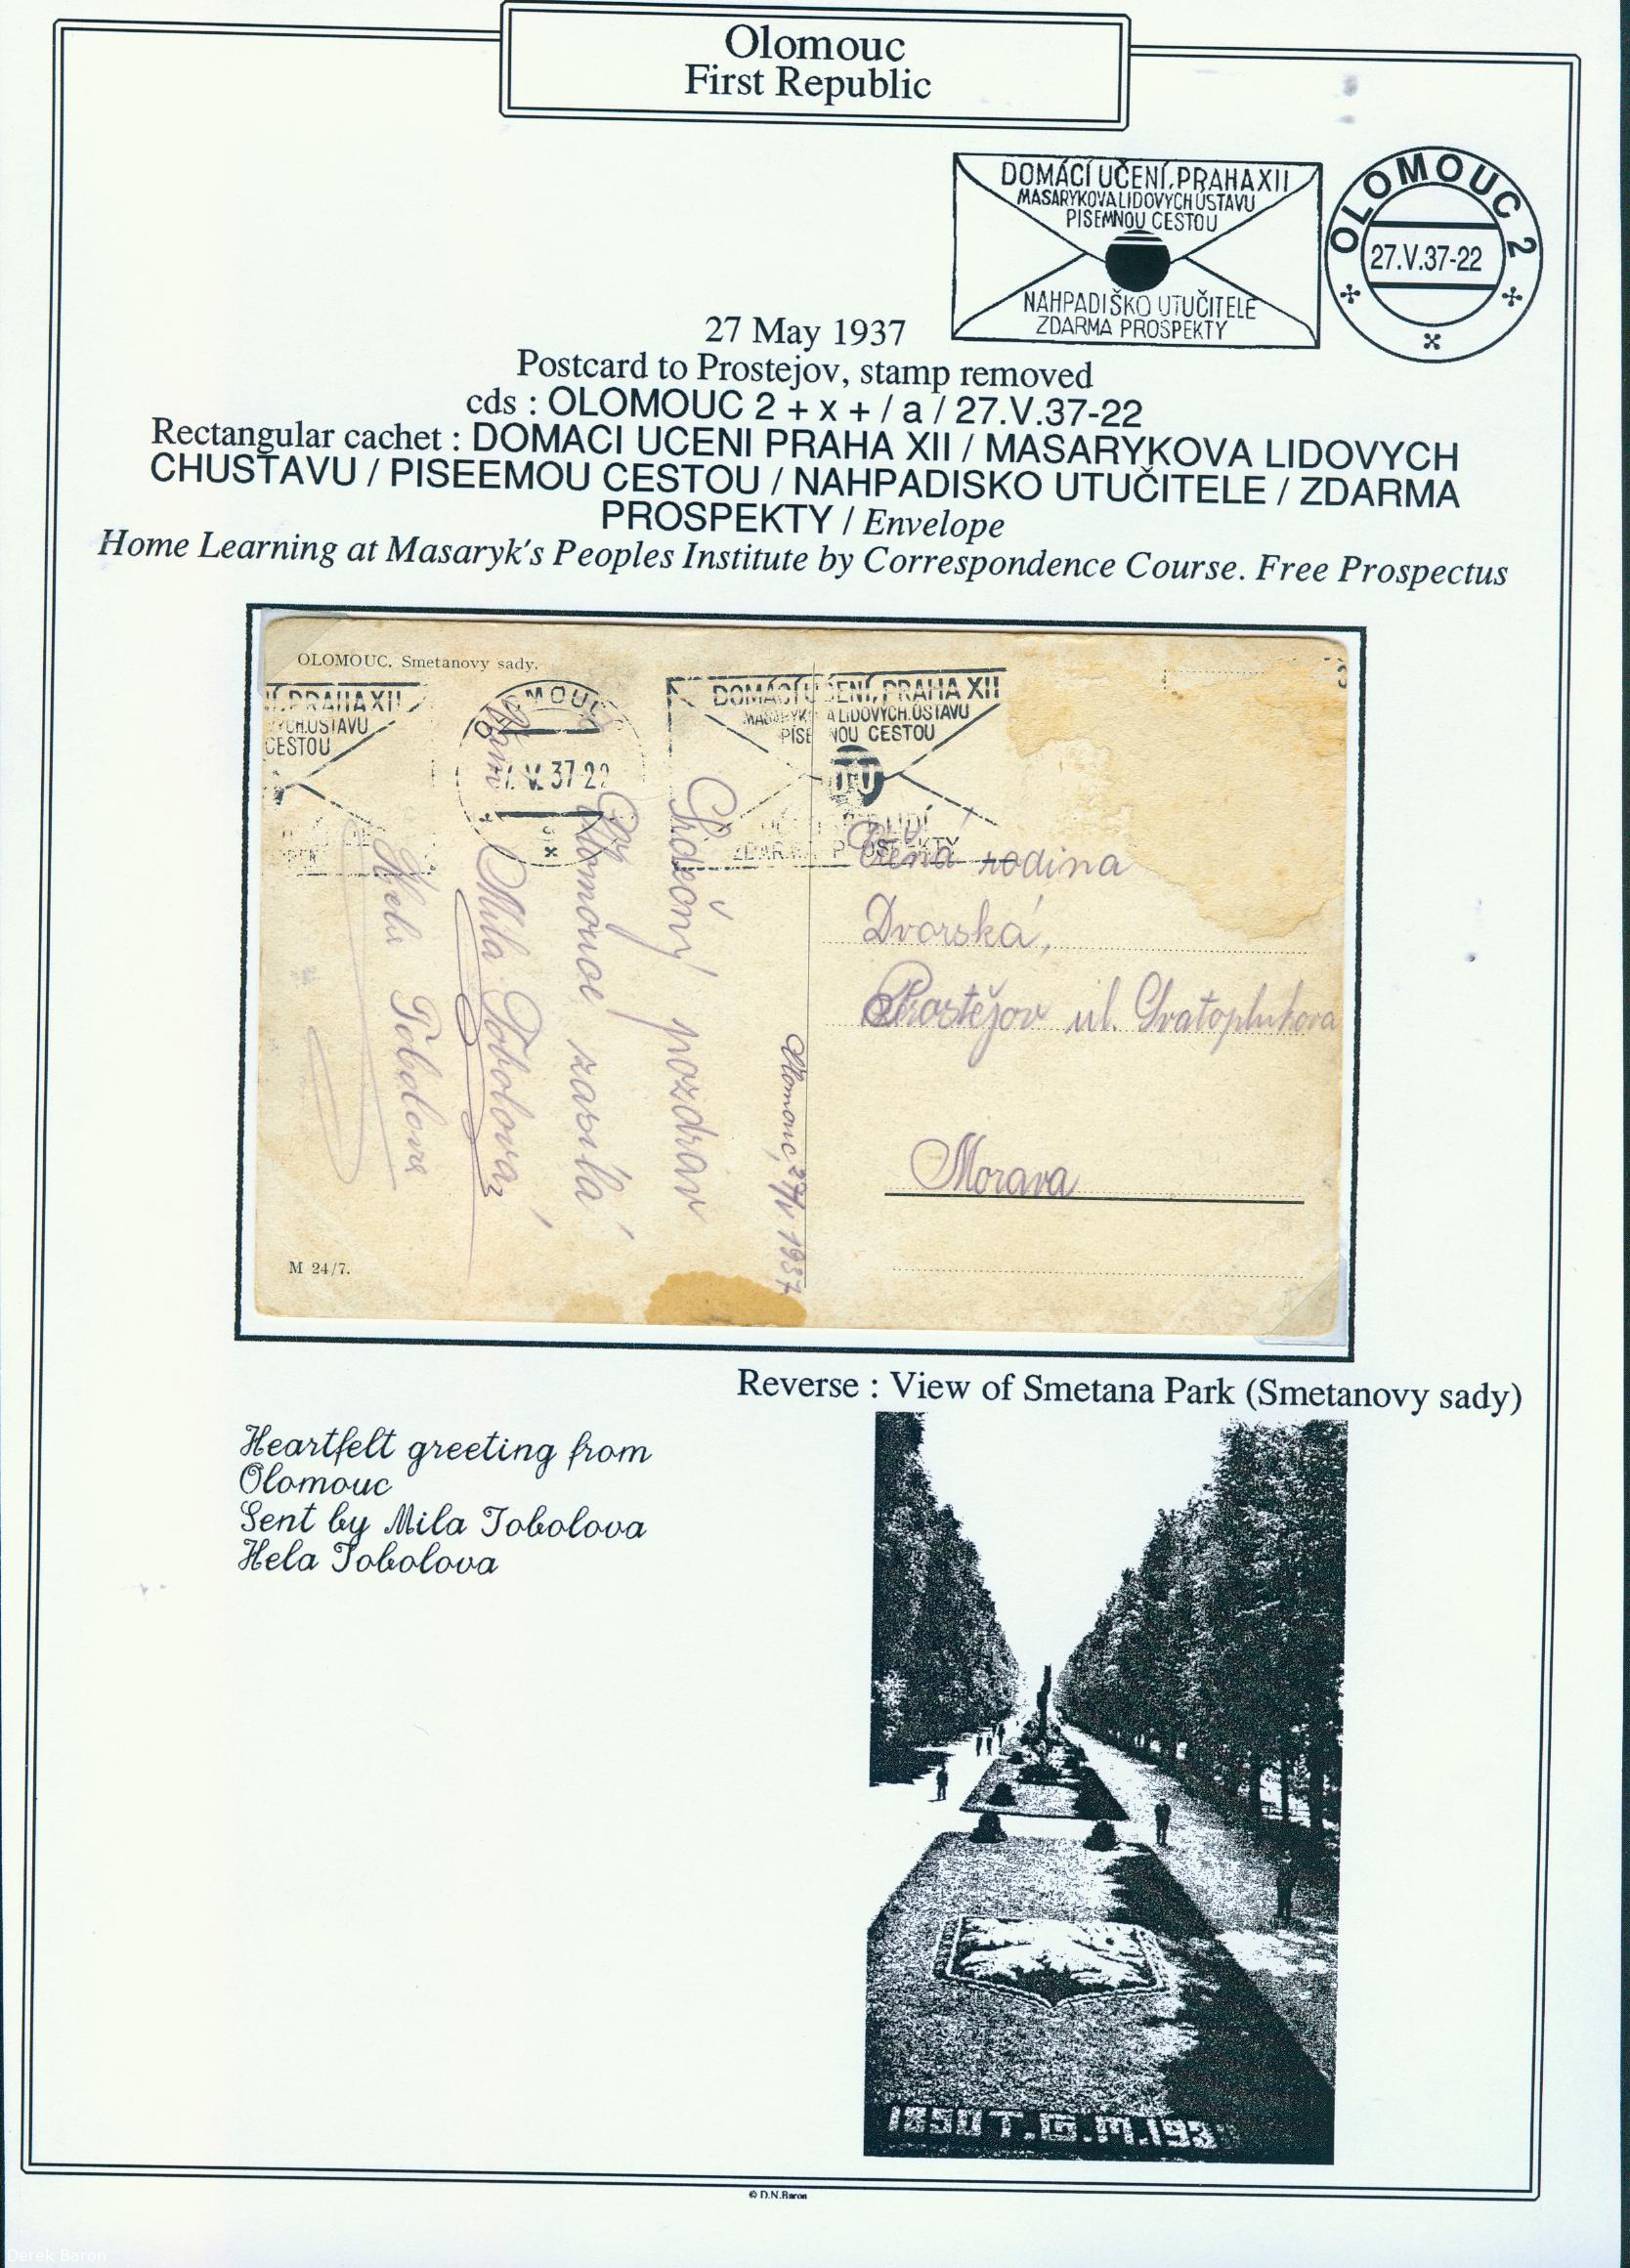 Olomouc
First Republic
DOMÁCÍ UČENÍ, PRAHA XII
MASARYKOVA LIDOVYCH ÚSTAVU
PISEMNOU CESTOU
NAHPADIŠKO UTUČITELE
ZDARMA PROSPEKTY
OLOMOUC 2
27.V.37-22
27 May 1937
Postcard to Prostejov, stamp removed
cds : OLOMOUC 2 + x + / a / 27.V.37-22
Rectangular cachet : DOMACI UCENI PRAHA XII / MASARYKOVA LIDOVYCH
CHUSTAVU / PISEEMOU CESTOU / NAHPADISKO UTUČITELE / ZDARMA
PROSPEKTY / Envelope
Home Learning at Masaryk's Peoples Institute by Correspondence Course. Free Prospectus
OLOMOUC. Smetanovy sady.
Í, PRAHA XII
YCH. ÚSTAVU
CESTOU
OLOMOUC
V. 37-22
DOMÁCÍ U ENÍ, PRAHA XII
A LIDOVYCH. ÚSTAVU
PÍSE NOU CESTOU
Srdečný pozdrav
Olomouce zasílá
Mila Tobolova
Hela Tobolova
Olomouc, 27/V 1937
rodina
Dvorská,
Prostějov ul. Svatoplukova
Morava
M 24/7.
Reverse : View of Smetana Park (Smetanovy sady)
Heartfelt greeting from
Olomouc
Sent by Mila Tobolova
Hela Tobolova
1850 T.G.M. 193
© D.N.Baron
Derek Baron